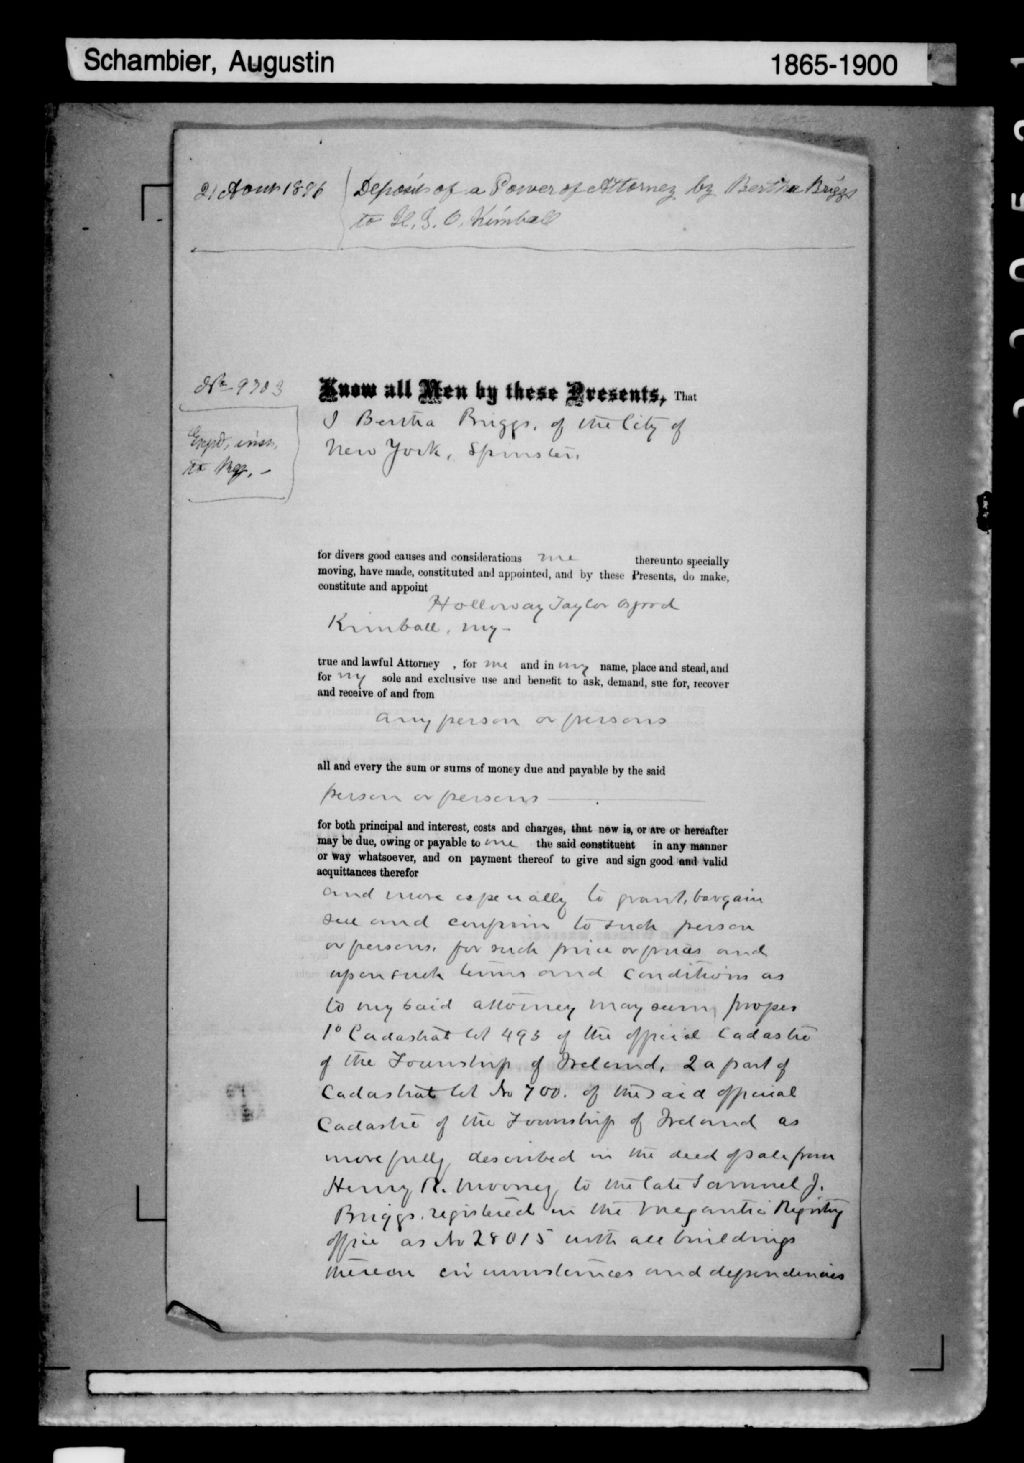 Schambier, Augustin 1865-1900
21 Aout 1896 Deposit of a Power of Attorney by Bertha Briggs
to H. T. O. Kimball
No 9703
Know all Men by these Presents, That
I Bertha Briggs, of the City of
New York, Spinster,
to Reg.
for divers good causes and considerations me thereunto specially
moving, have made, constituted and appointed, and by these Presents, do make,
constitute and appoint
Holloway Taylor Osgood
Kimball, my
true and lawful Attorney , for me and in my name, place and stead, and
for my sole and exclusive use and benefit to ask, demand, sue for, recover
and receive of and from
any person or persons
all and every the sum or sums of money due and payable by the said
person or persons
for both principal and interest, costs and charges, that now is, or are or hereafter
may be due, owing or payable to me the said constituent in any manner
or way whatsoever, and on payment thereof to give and sign good and valid
acquittances therefor
and more especially to grant, bargain
sell and confirm to such person
or persons, for such price or prices and
upon such terms and conditions as
to my said attorney may seem proper
1o Cadastral lot 493 of the official Cadastre
of the Township of Ireland, 2 a part of
Cadastral lot No 700. of the said official
Cadastre of the Township of Ireland as
more fully described in the deed of sale from
Henry R. Mooney to the late Samuel J.
Briggs, registered in the Megantic Registry
office as No 28015 with all buildings
thereon circumstances and dependencies